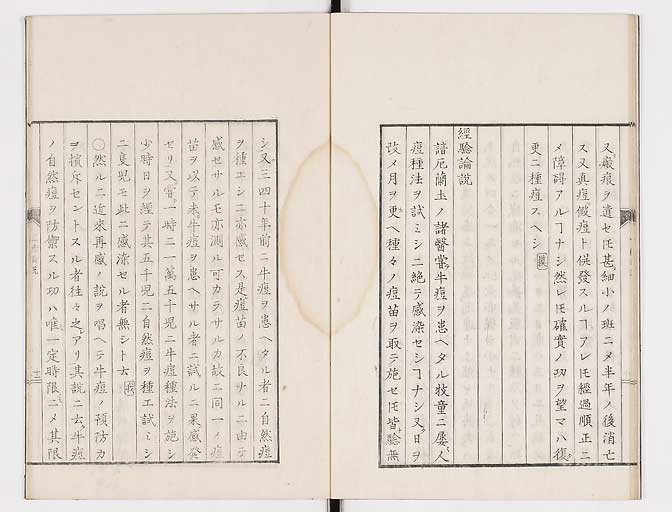 又瘢痕ヲ遺セ𪜈甚細小ノ斑ニメ半年ノ後消亡
ス又真痘假痘ト供發スルヿアレ𪜈經過順正ニ
メ障碍アルヿナシ然レ𪜈確實ノ功ヲ望マハ復
更ニ種痘スヘシ
經驗論說
諳厄蘭土ノ諸醫嘗牛痘ヲ患ヘタル牧童ニ屢人
痘種法ヲ試ミシニ絶テ感染セシヿナシ又日ヲ
改メ月ヲ更ヘ種々ノ痘苗ヲ取テ施セ𪜈皆驗無
シ又三四十年前ニ牛痘ヲ患ヘタル者ニ自然痘
ヲ種エシニ亦感セス是痘苗ノ不良サルニ由テ
感セサルモ亦測ル可カラサルカ故ニ同一ノ痘
苗ヲ以テ未牛痘ヲ患ヘサル者ニ試ルニ果感發
セリ又嘗一時ニ一萬五千児ニ牛痘種法ヲ施シ
少時日ヲ經テ其五千児ニ自然痘ヲ種エ試ミシ
ニ隻児モ此ニ感染セル者無シト云
〇然ルニ近來再感ノ說ヲ唱ヘテ牛痘ノ預防力
ヲ擯斥セントスル者往々之アリ其說ニ云牛痘
ノ自然痘ヲ防禦スル功ハ唯一定時限ニメ其限